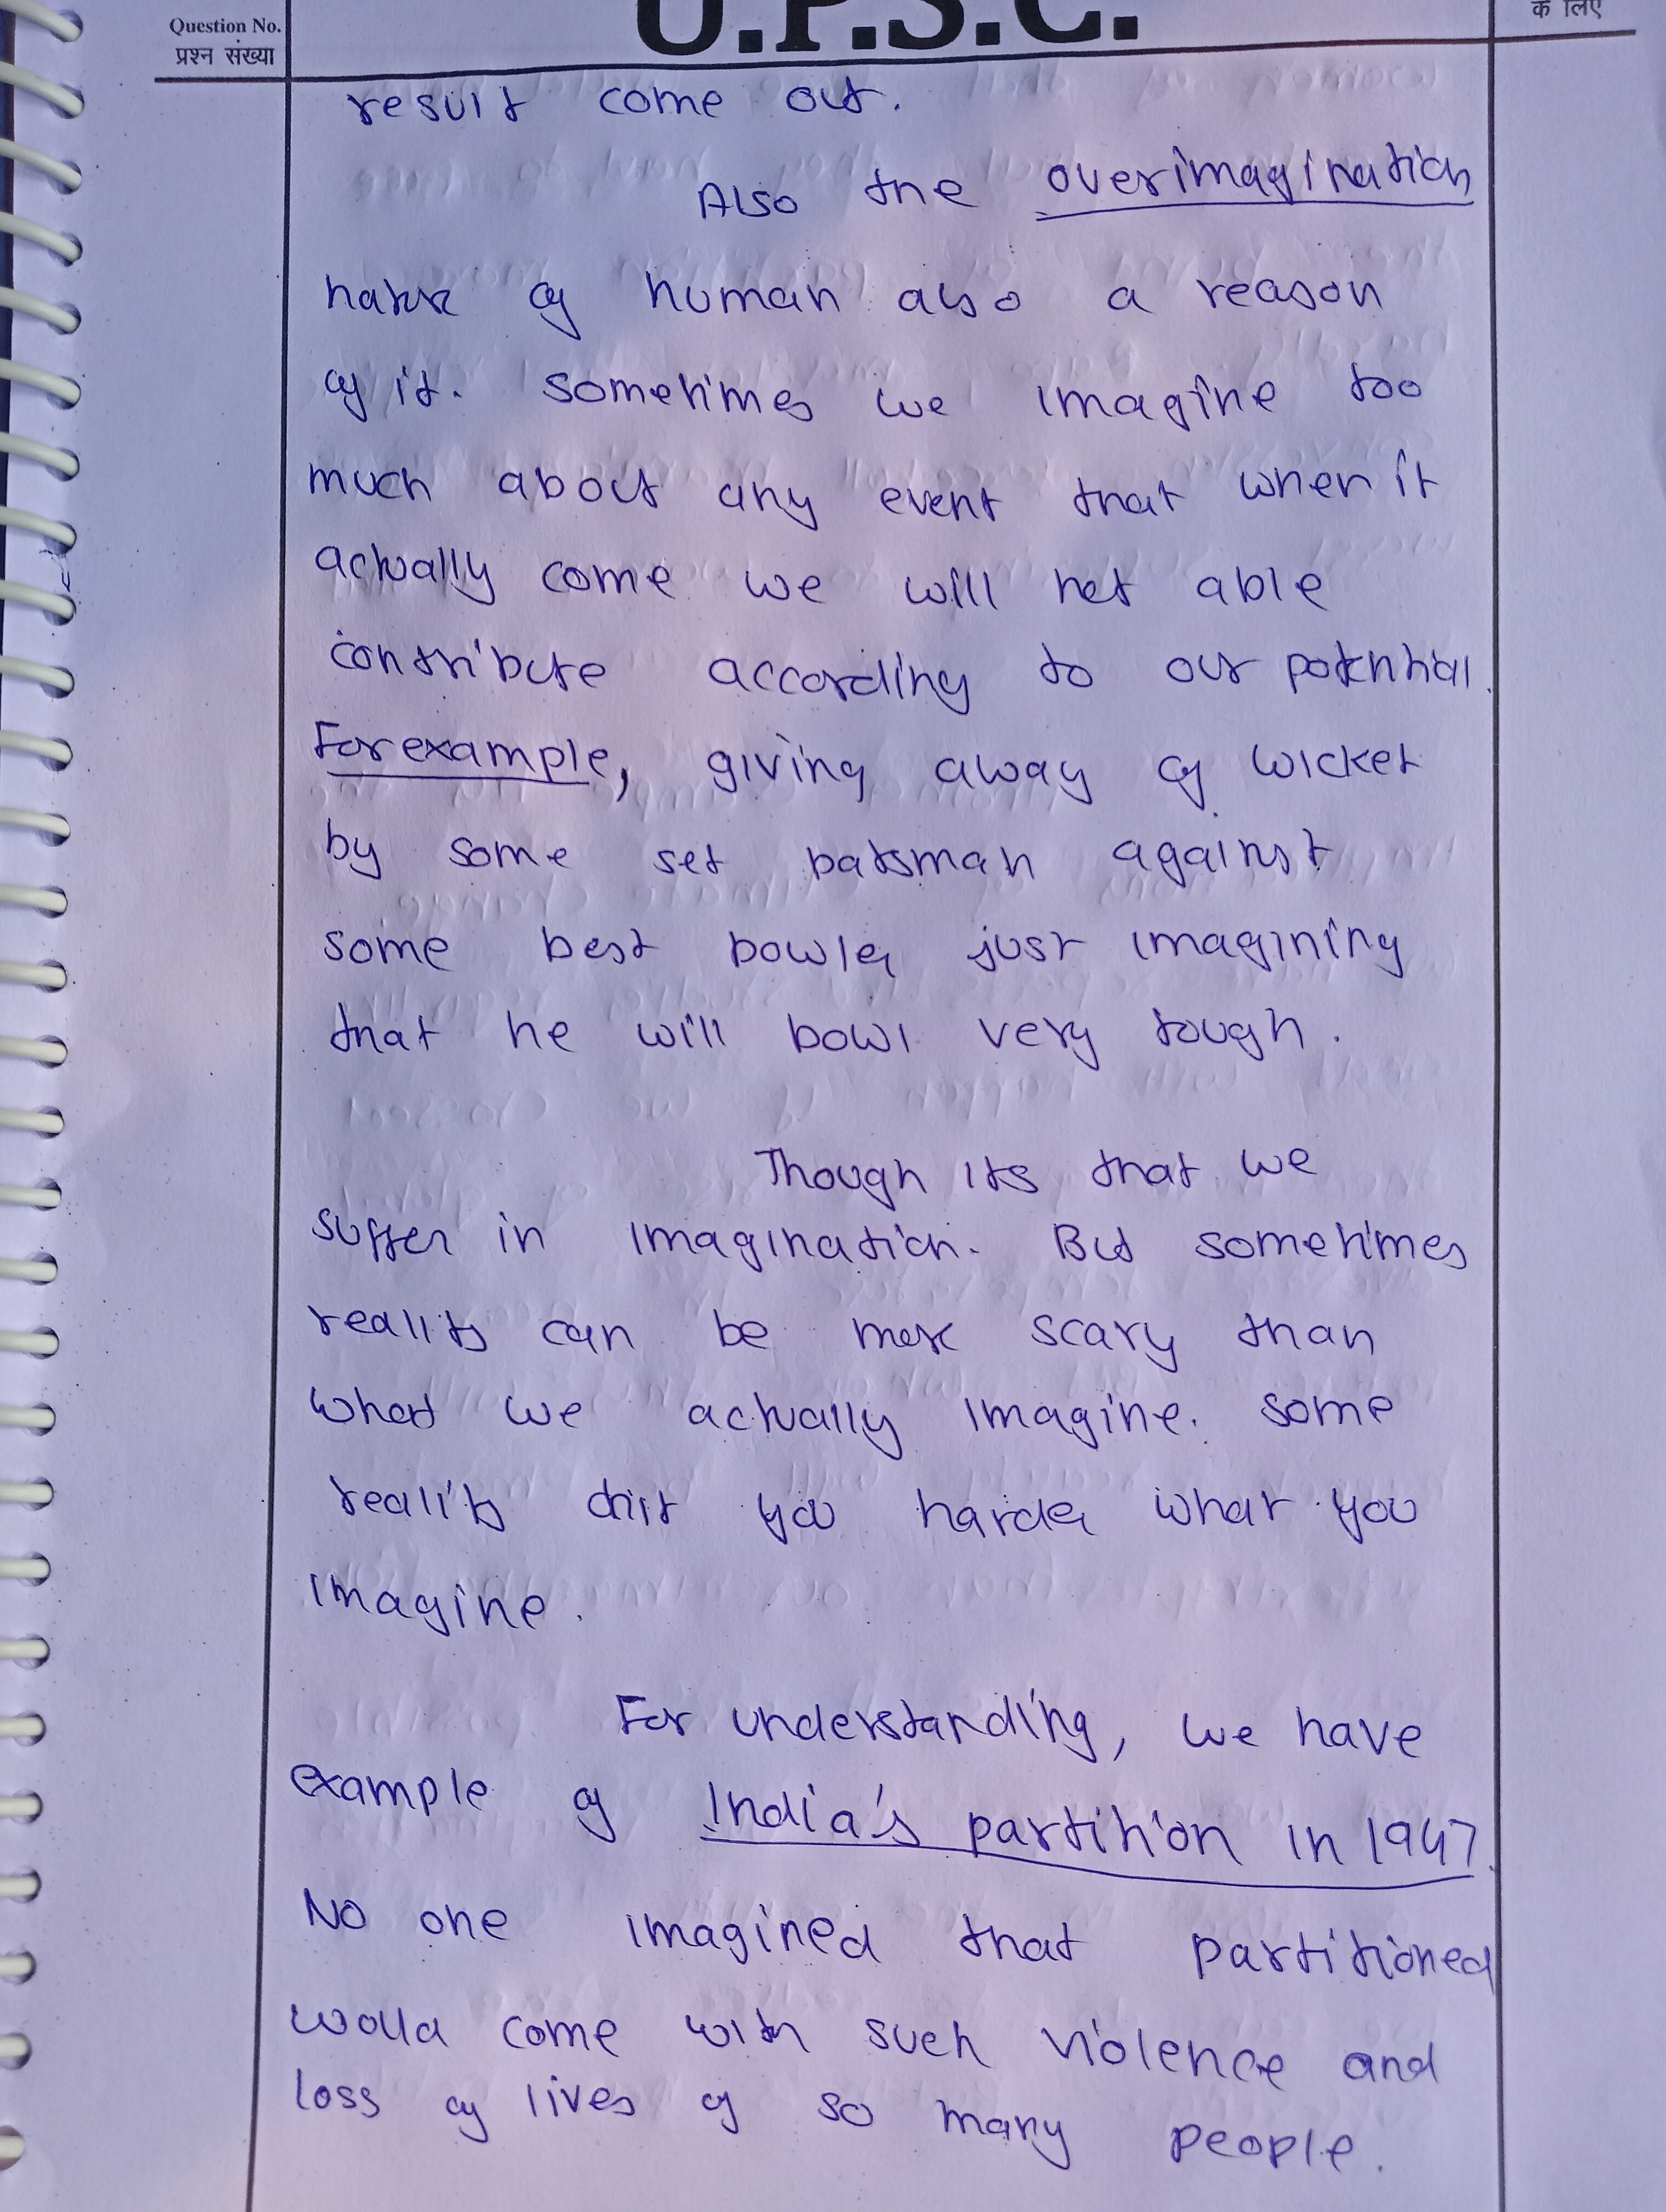 Question No.
प्रश्न संख्या
U.P.S.C.
के लिए
result come out.
Also the overimagination
nature of human also a reason
of it. Sometimes we imagine too
much about any event that when it
actually come we will not able
contribute according to our potential.
For example, giving away of wicket
by some set batsman against
some best bowler just imagining
that he will bowl very tough.
Though its that we
suffer in imagination. But sometimes
reality can be more scary than
what we actually imagine. Some
reality you harder what you
imagine.
For understanding, we have
example of India's partition in 1947.
No one imagined that partitioned
would come with such violence and
loss of lives of so many people.